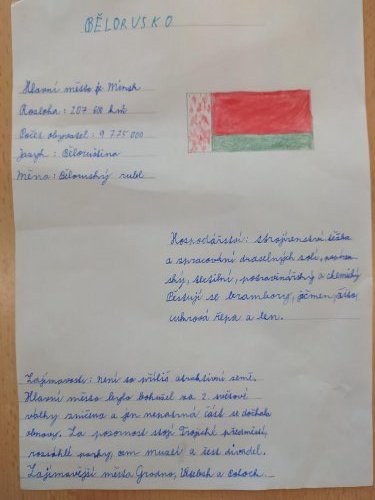 BĚLORUSKO
Hlavní město je Minsk
Rozloha: 207 600 km²
Počet obyvatel: 9 775 000
Jazyk: Běloruština
Měna: Běloruský rubl
Hospodářství: strojírenství těžba
a zpracování draselných solí,
ský, textilní, potravinářský a chemický
Pěstují se brambory, ječmen, žito,
cukrová řepa a len.
Zajímavosti: není to příliš atraktivní země.
Hlavní město bylo bohužel za 2. světové
války zničena a jen nepatrná část se dočkala
obnovy. Za pozornost stojí Trojické předměstí,
rozsáhlé parky, osm muzeí a šest divadel.
Zajímavější města Grodno, Vitebsk a Polock.